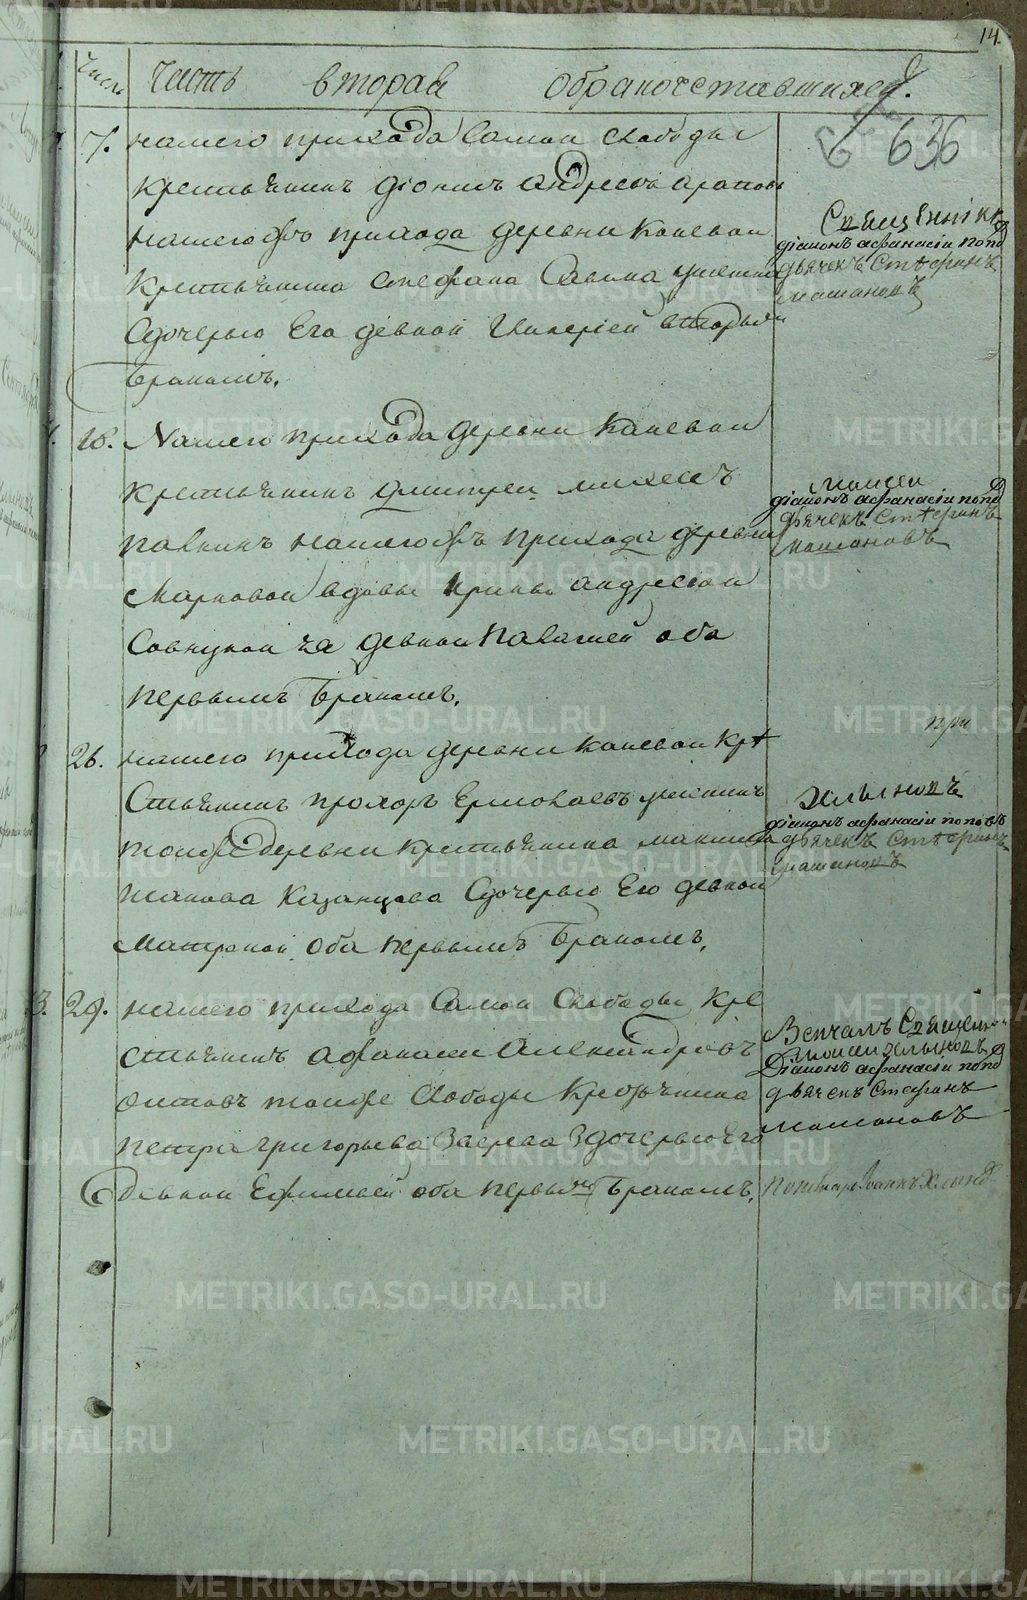 14.
Числ Часть вторая обракочетавшихся.
636
7. нашего прихода самой слободы
крестьянинъ дионисъ андреевъ араповъ
нашегожъ прихода деревни каневой
крестьянина стефана
Сдочерью Его девкой Гликерией вторым
бракомъ.
Священникъ
діаконъ афанасіи попов
дьячекъ Стефанъ
машановъ
18. Нашего прихода деревни каневой
крестьянинъ дмитреи михеевъ
павкинъ нашегожъ прихода деревни
Марковой вдовы ирины андреевой
Совнукой ея девкой Палагией оба
первымъ бракомъ.
Моисеи
діаконъ афанасіи попов
дьячекъ Стефанъ
машановъ
при
26. нашего прихода деревни каневой кре
Стьянинъ прохоръ Ермолаевъ
тоейже деревни крестьянина максима
Казанцова Сдочерью Его девкой
Матроной оба первымъ бракомъ.
Хлыновъ
діаконъ афанасіи поповъ
дьячекъ Стефанъ
машановъ
29. нашего прихода Самой Слободы Кре
стьянинъ афанасеи Александровъ
тоейже Слободы Крестьянина
петра григорьева Зверева Здочерью Его
девкой Ефимьей оба первымъ бракомъ.
Венчалъ Священ
моисеи хлыновъ
Діаконъ афанасіи попов
дьячекъ Стефанъ
машановъ
Пономарь Іоаннъ Хлынов
METRIKI.GASO-URAL.RU